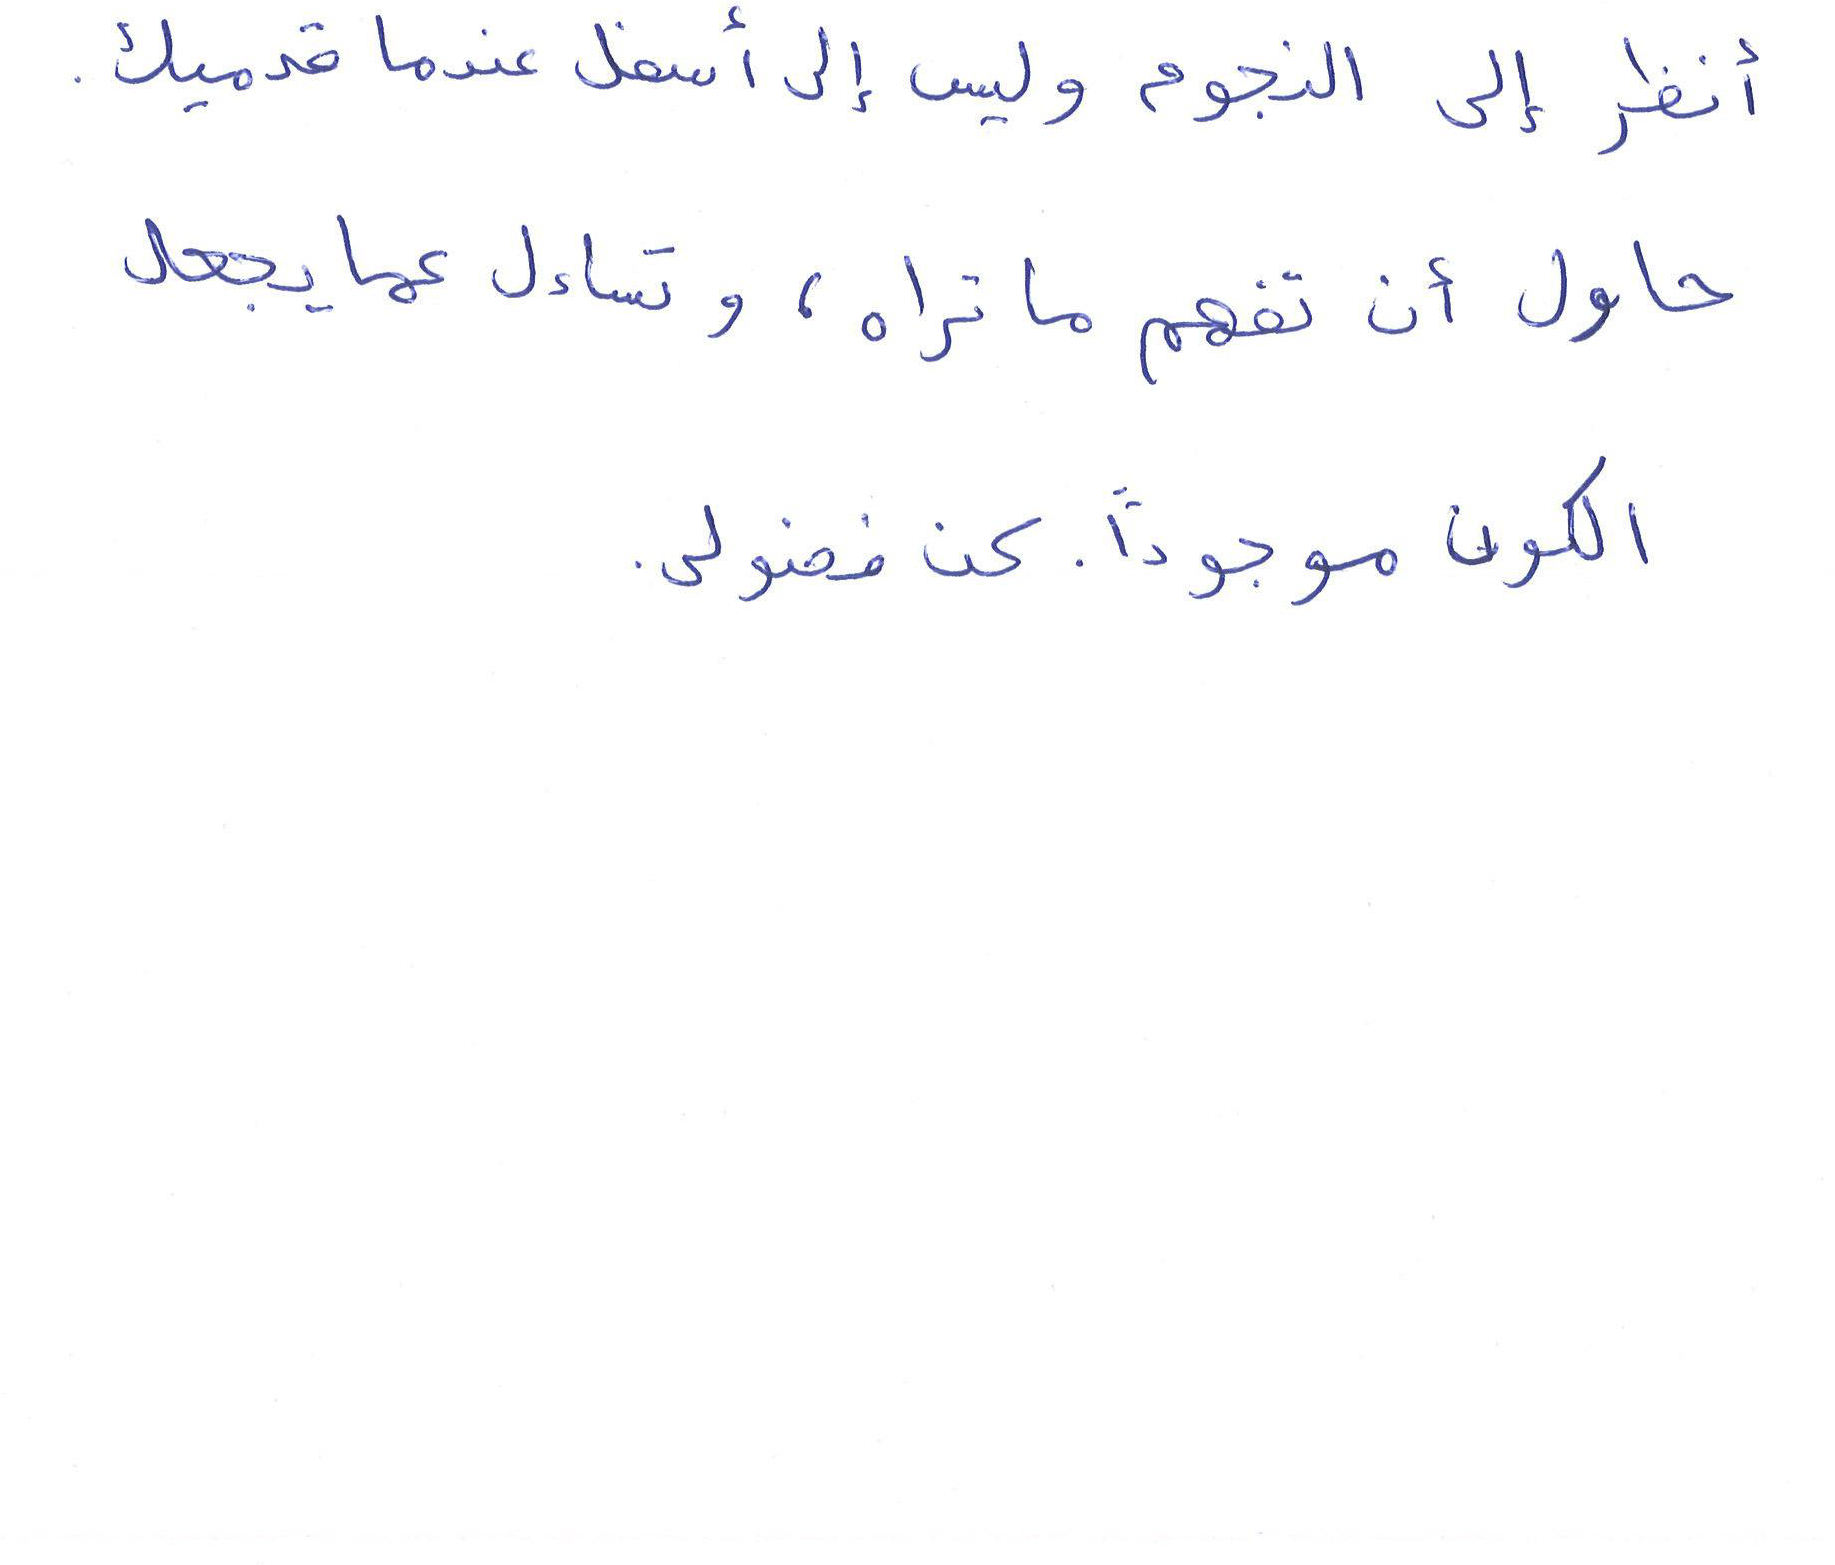 أنظر إلى النجوم وليس إلى أسفل عندما قدميك.
حاول أن تفهم ما تراه، وتساءل عما يجعل
الكون موجوداً. كن فضولى.